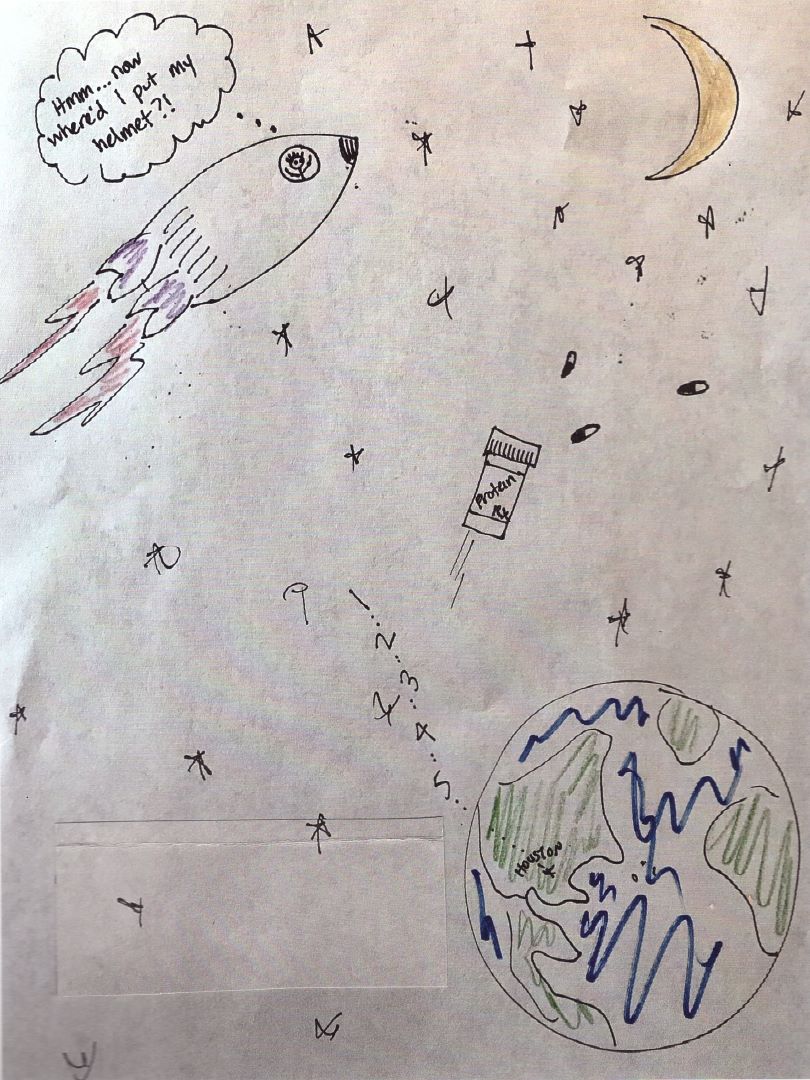 Hmm...now
where'd I put my
helmet?!
Protein
Rx
1...
2...
3...
4...
5...
HOUSTON